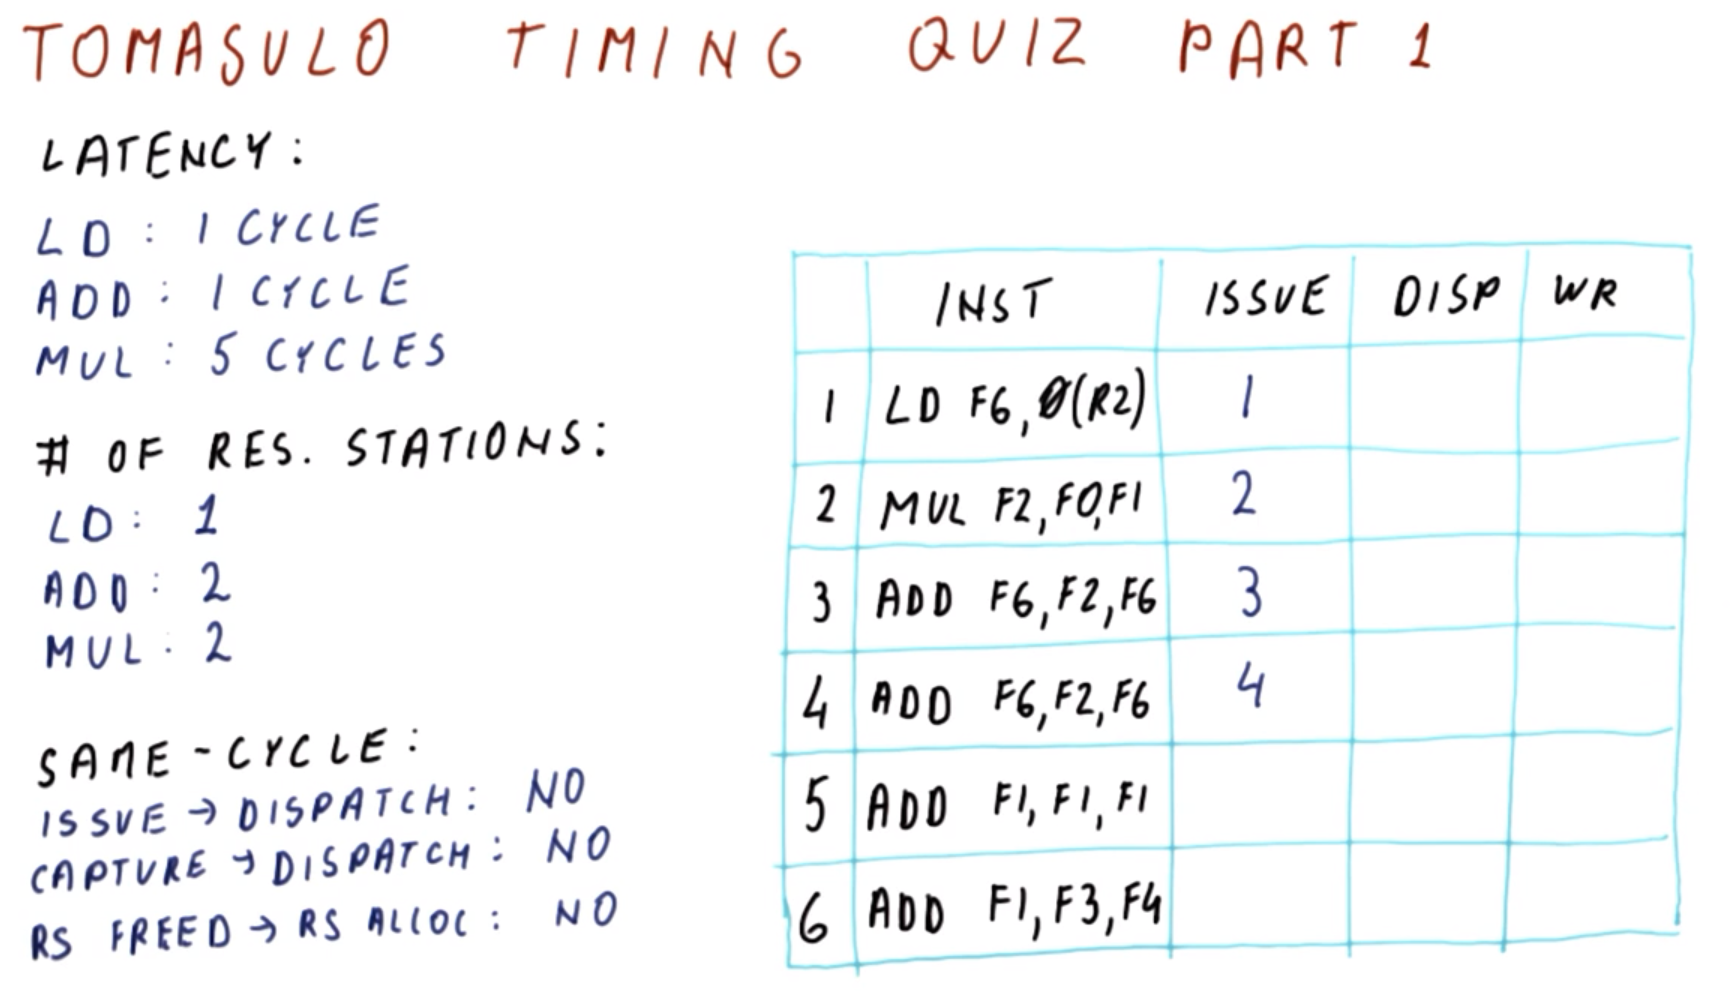 TOMASULO TIMING QUIZ PART 1
LATENCY:
LD: 1 CYCLE
ADD: 1 CYCLE
MUL: 5 CYCLES
# OF RES. STATIONS:
LD: 1
ADD: 2
MUL: 2
SAME-CYCLE:
ISSUE → DISPATCH: NO
CAPTURE → DISPATCH: NO
RS FREED → RS ALLOC: NO
INST ISSUE DISP WR
1 LD F6, 0(R2) 1
2 MUL F2, F0, F1 2
3 ADD F6, F2, F6 3
4 ADD F6, F2, F6 4
5 ADD F1, F1, F1
6 ADD F1, F3, F4